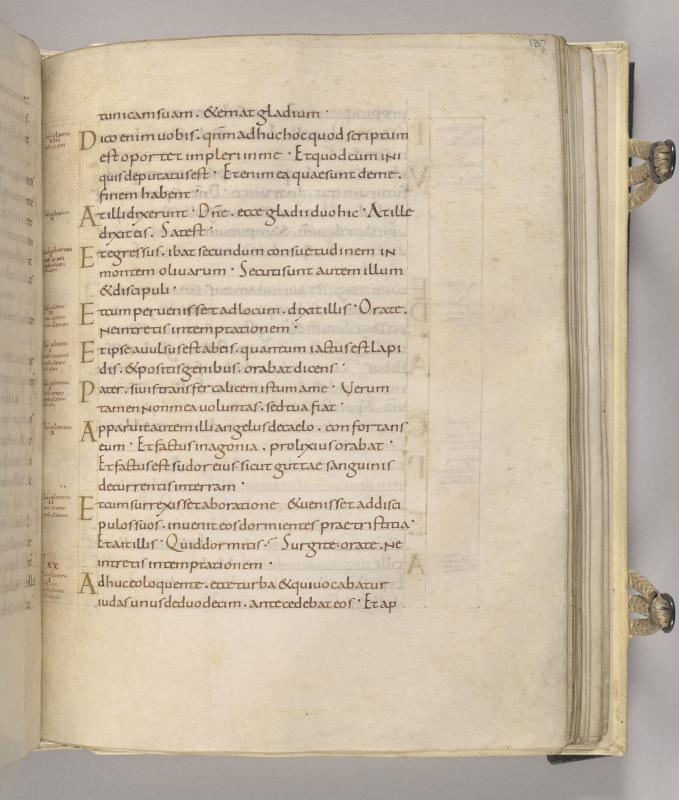 137
tunicam suam . & emat gladium ·
Dico enim uobis . qnm adhuc hoc quod scriptum
est oportet impleri in me · Et quod cum ini
quis deputatus est · Etenim ea quae sunt de me .
finem habent ·
At illi dixerunt · Dne . ecce gladii duo hic · At ille
dixit eis . Sat est
Et egressus . ibat secundum consuetudinem in
montem oliuarum · Secuti sunt autem illum
& discipuli ·
Et cum peruenisset ad locum . dixit illis · Orate .
Ne intretis in temptationem ·
Et ipse auulsus est ab eis . quantum iactus est lapi
dis . & positis genibus . orabat dicens ·
Pater . si uis transfer calicem istum a me · Verum
tamen non mea uoluntas . sed tua fiat ·
Apparuit autem illi angelus de caelo . confortans
eum · Et factus in agonia . prolixius orabat ·
Et factus est sudor eius sicut guttae sanguinis
decurrentis in terram ·
Et cum surrexisset ab oratione & uenisset ad disci
pulos suos . inuenit eos dormientes prae tristitia ·
Et ait illis · Quid dormitis · Surgite . orate . Ne
intretis in temptationem ·
XX
Adhuc eo loquente . ecce turba & qui uocabatur
iudas unus de duodecim . antecedebat eos · Et ap